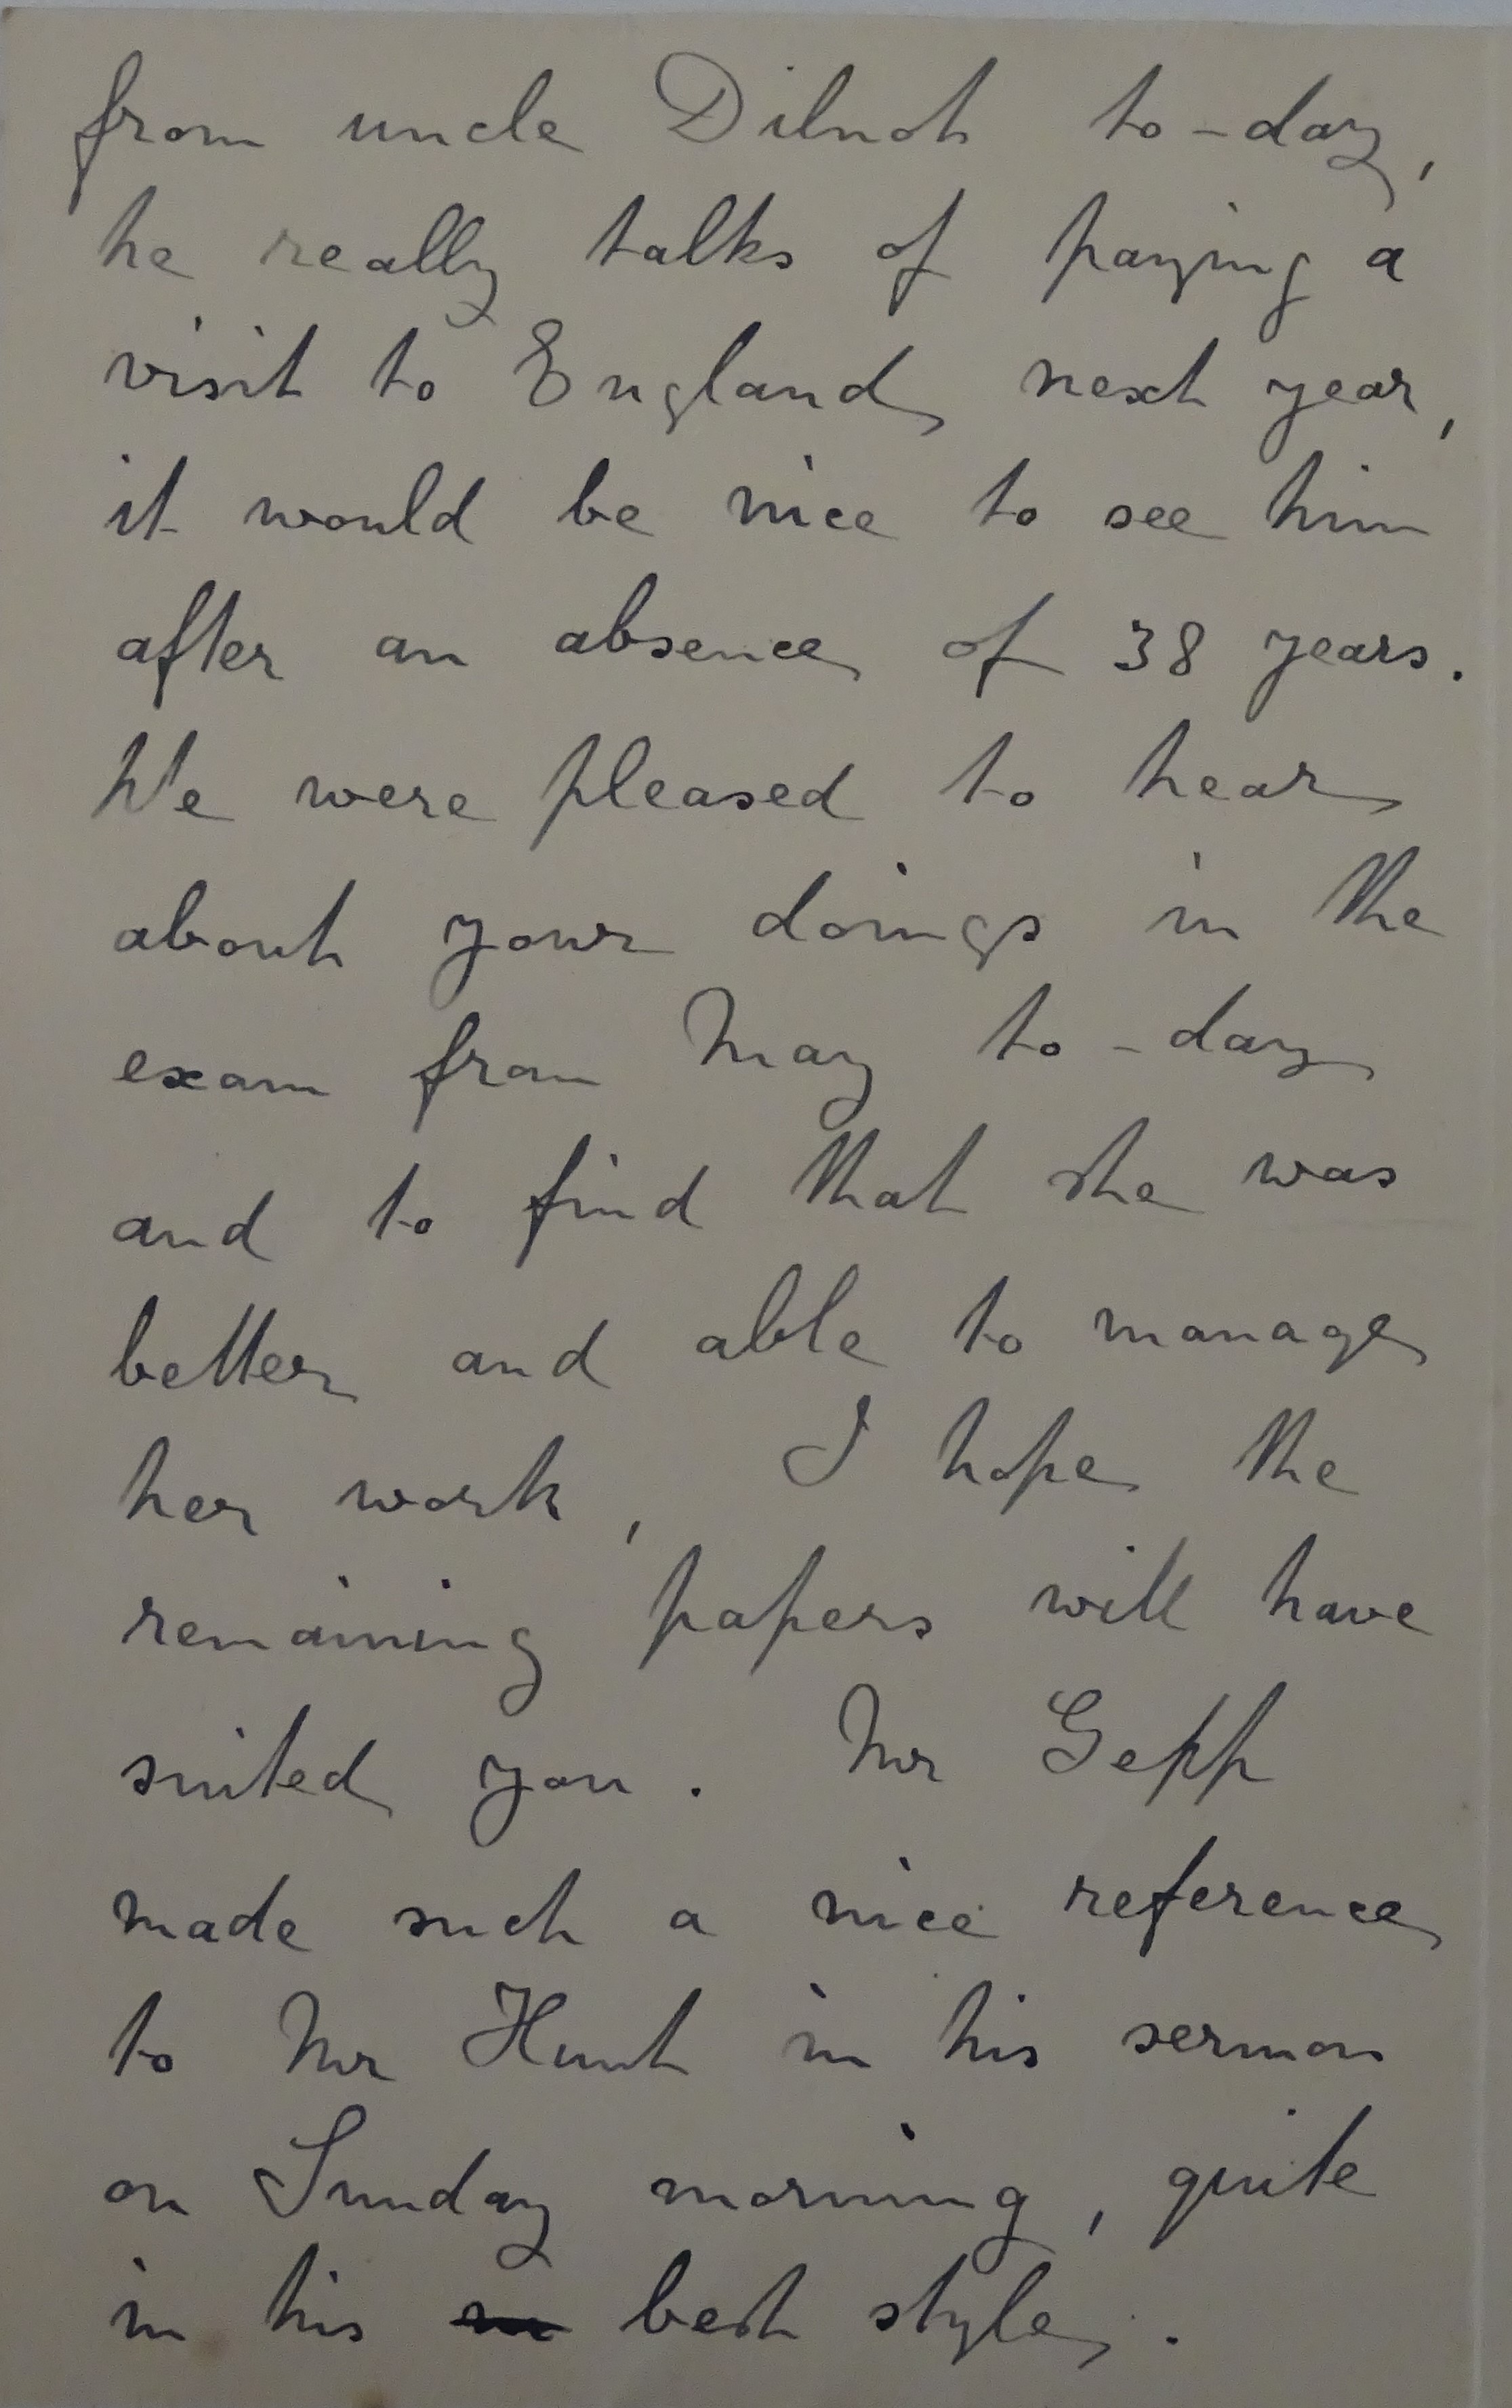 from uncle Dilnot to-day,
he really talks of paying a
visit to England next year,
it would be nice to see him
after an absence of 38 years.
We were pleased to hear
about your doings in the
exam from May to-day
and to find that she was
better and able to manage
her work, I hope the
remaining papers will have
suited you. Mr Gepp
made such a nice reference
to Mr Hunt in his sermon
on Sunday morning, quite
in his best style.